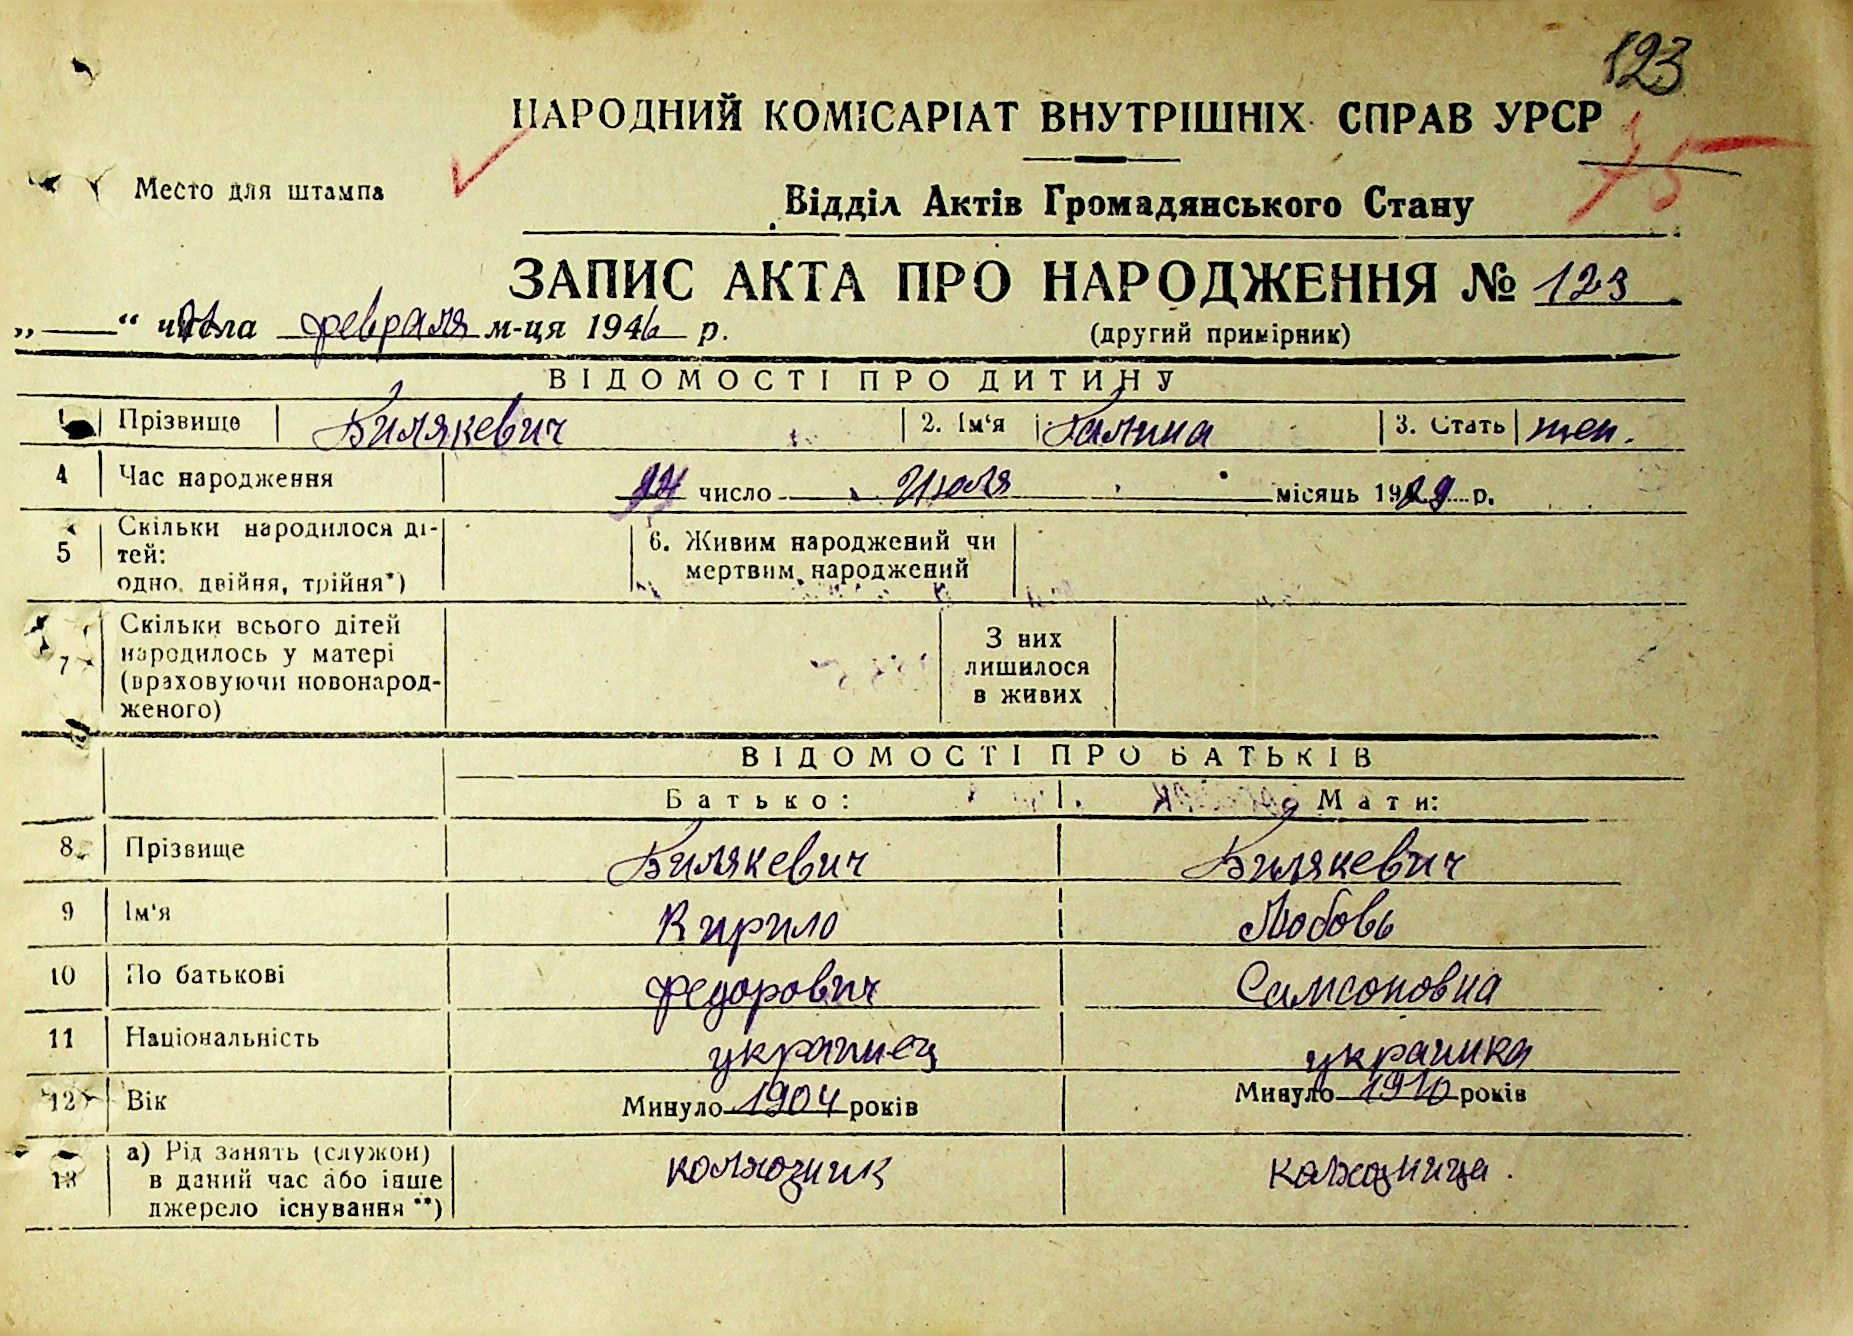 123
НАРОДНИЙ КОМІСАРІАТ ВНУТРІШНІХ СПРАВ УРСР
75
Место для штампа
Відділ Актів Громадянського Стану
ЗАПИС АКТА ПРО НАРОДЖЕННЯ № 123
„ “ числа февраля м-ця 1946 р.
(другий примірник)
ВІДОМОСТІ ПРО ДИТИНУ
1 Прізвище Билякевич 2. Ім‘я Галина 3. Стать жен.
4 Час народження число Июля місяць 1929 р.
5 Скільки народилося ді-
тей:
одно, двійня, трійня*)
6. Живим народжений чи
мертвим народжений
7 Скільки всього дітей
народилось у матері
(враховуючи новонарод-
женого)
З них
лишилося
в живих
ВІДОМОСТІ ПРО БАТЬКІВ
Батько: Мати:
8 Прізвище Билякевич Билякевич
9 Ім‘я Кирило Любовь
10 По батькові Федорович Самсоновна
11 Національність украинец украинка
12 Вік Минуло 1904 років Минуло 1910 років
13 а) Рід занять (служби)
в даний час або інше
джерело існування **)
колхозник колхозница.